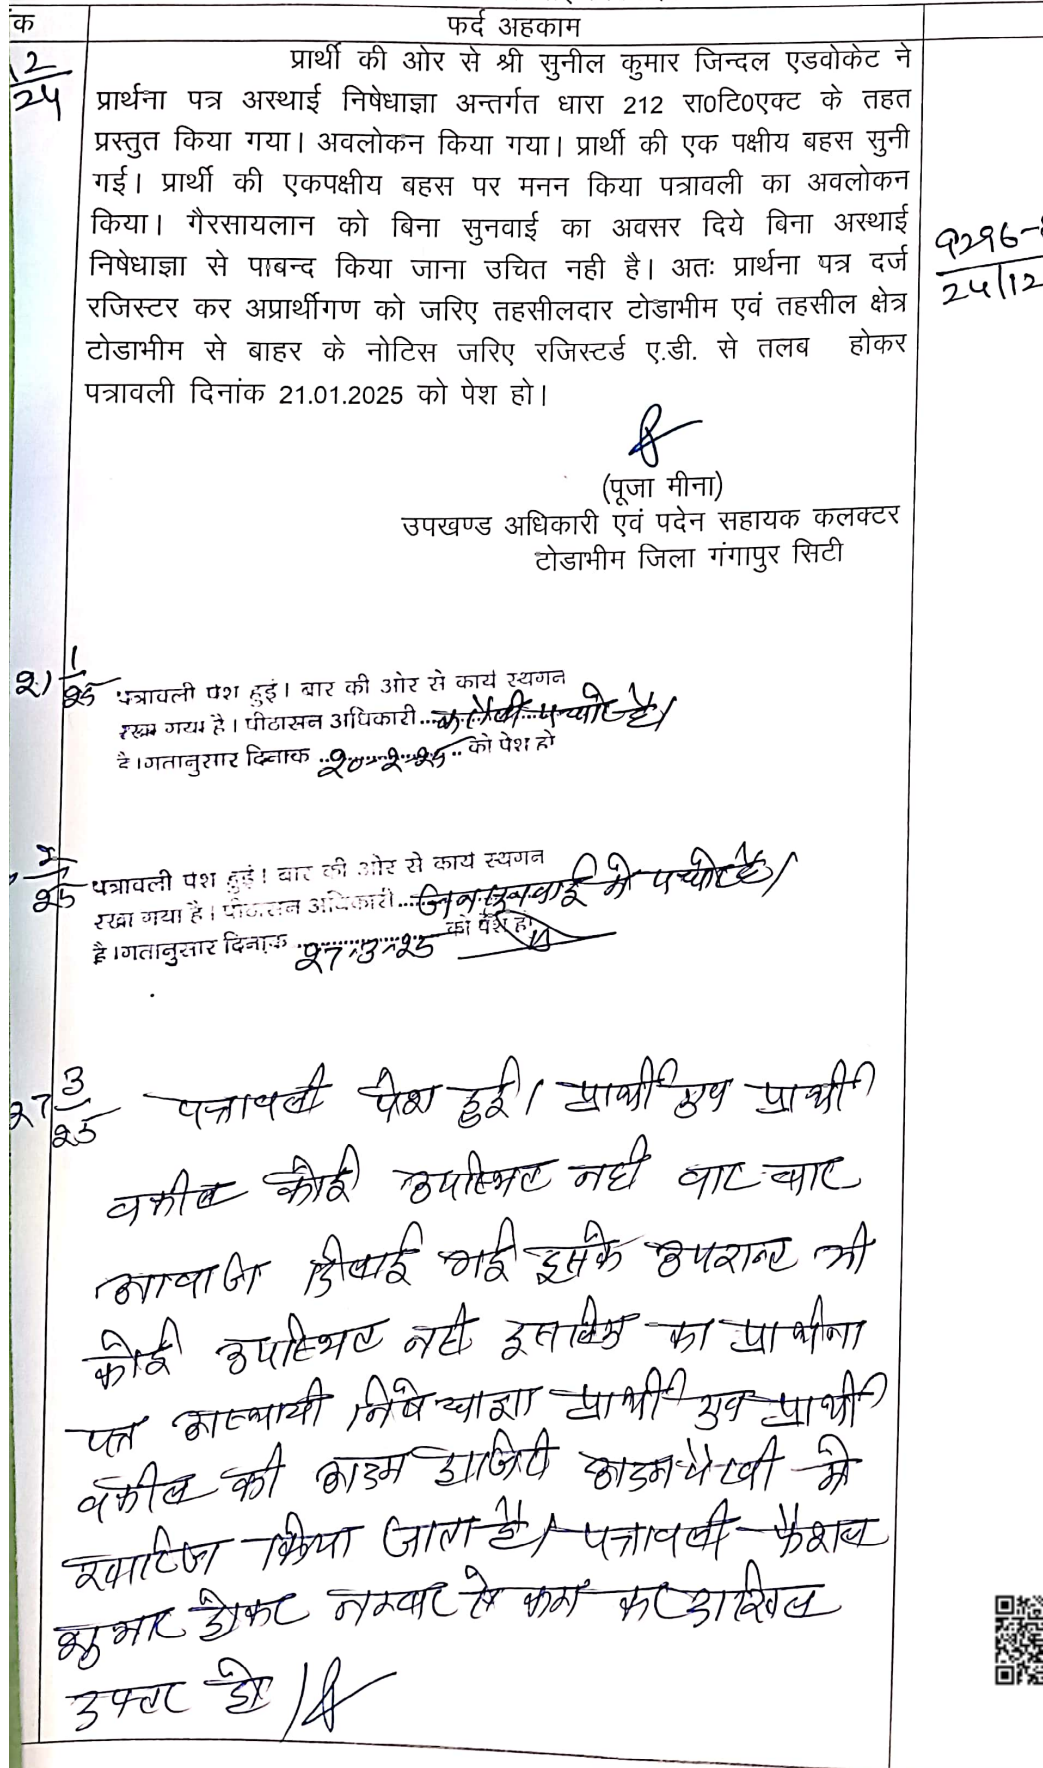 क
फर्द अहकाम
12
24
प्रार्थी की ओर से श्री सुनील कुमार जिन्दल एडवोकेट ने
प्रार्थना पत्र अस्थाई निषेधाज्ञा अन्तर्गत धारा 212 रा0टि0एक्ट के तहत
प्रस्तुत किया गया। अवलोकन किया गया। प्रार्थी की एक पक्षीय बहस सुनी
गई। प्रार्थी की एकपक्षीय बहस पर मनन किया पत्रावली का अवलोकन
किया। गैरसायलान को बिना सुनवाई का अवसर दिये बिना अस्थाई
निषेधाज्ञा से पाबन्द किया जाना उचित नही है। अतः प्रार्थना पत्र दर्ज
रजिस्टर कर अप्रार्थीगण को जरिए तहसीलदार टोडाभीम एवं तहसील क्षेत्र
टोडाभीम से बाहर के नोटिस जरिए रजिस्टर्ड ए.डी. से तलब होकर
पत्रावली दिनांक 21.01.2025 को पेश हो।
24/12
(पूजा मीना)
उपखण्ड अधिकारी एवं पदेन सहायक कलक्टर
टोडाभीम जिला गंगापुर सिटी
21 1/25
पत्रावली पेश हुई। बार की ओर से कार्य स्थगन
रखा गया है। पीठासन अधिकारी
है। गतानुसार दिनांक 20-2-25 को पेश हो
2/25
पत्रावली पेश हुई। बार की ओर से कार्य स्थगन
रखा गया है। पीठासन अधिकारी जन सुनवाई मे
है। गतानुसार दिनांक 27-3-25 को पेश हो
27 3/25
पत्रावली पेश हुई। प्रार्थी एव प्रार्थी
वकील कोई उपस्थित नही बार बार
आवाज दिवाई गई इसके उपरान्त भी
कोई उपस्थित नही इसलिए का प्रार्थना
पत्र अस्थायी निषेधाज्ञा प्रार्थी एव प्रार्थी
वकील की अदम हाजिरी अदम पैरवी मे
खारिज किया जाता है। पत्रावली फैशल
शुमार होकर नम्बर से कम कर दाखिल
दफ्तर हो।